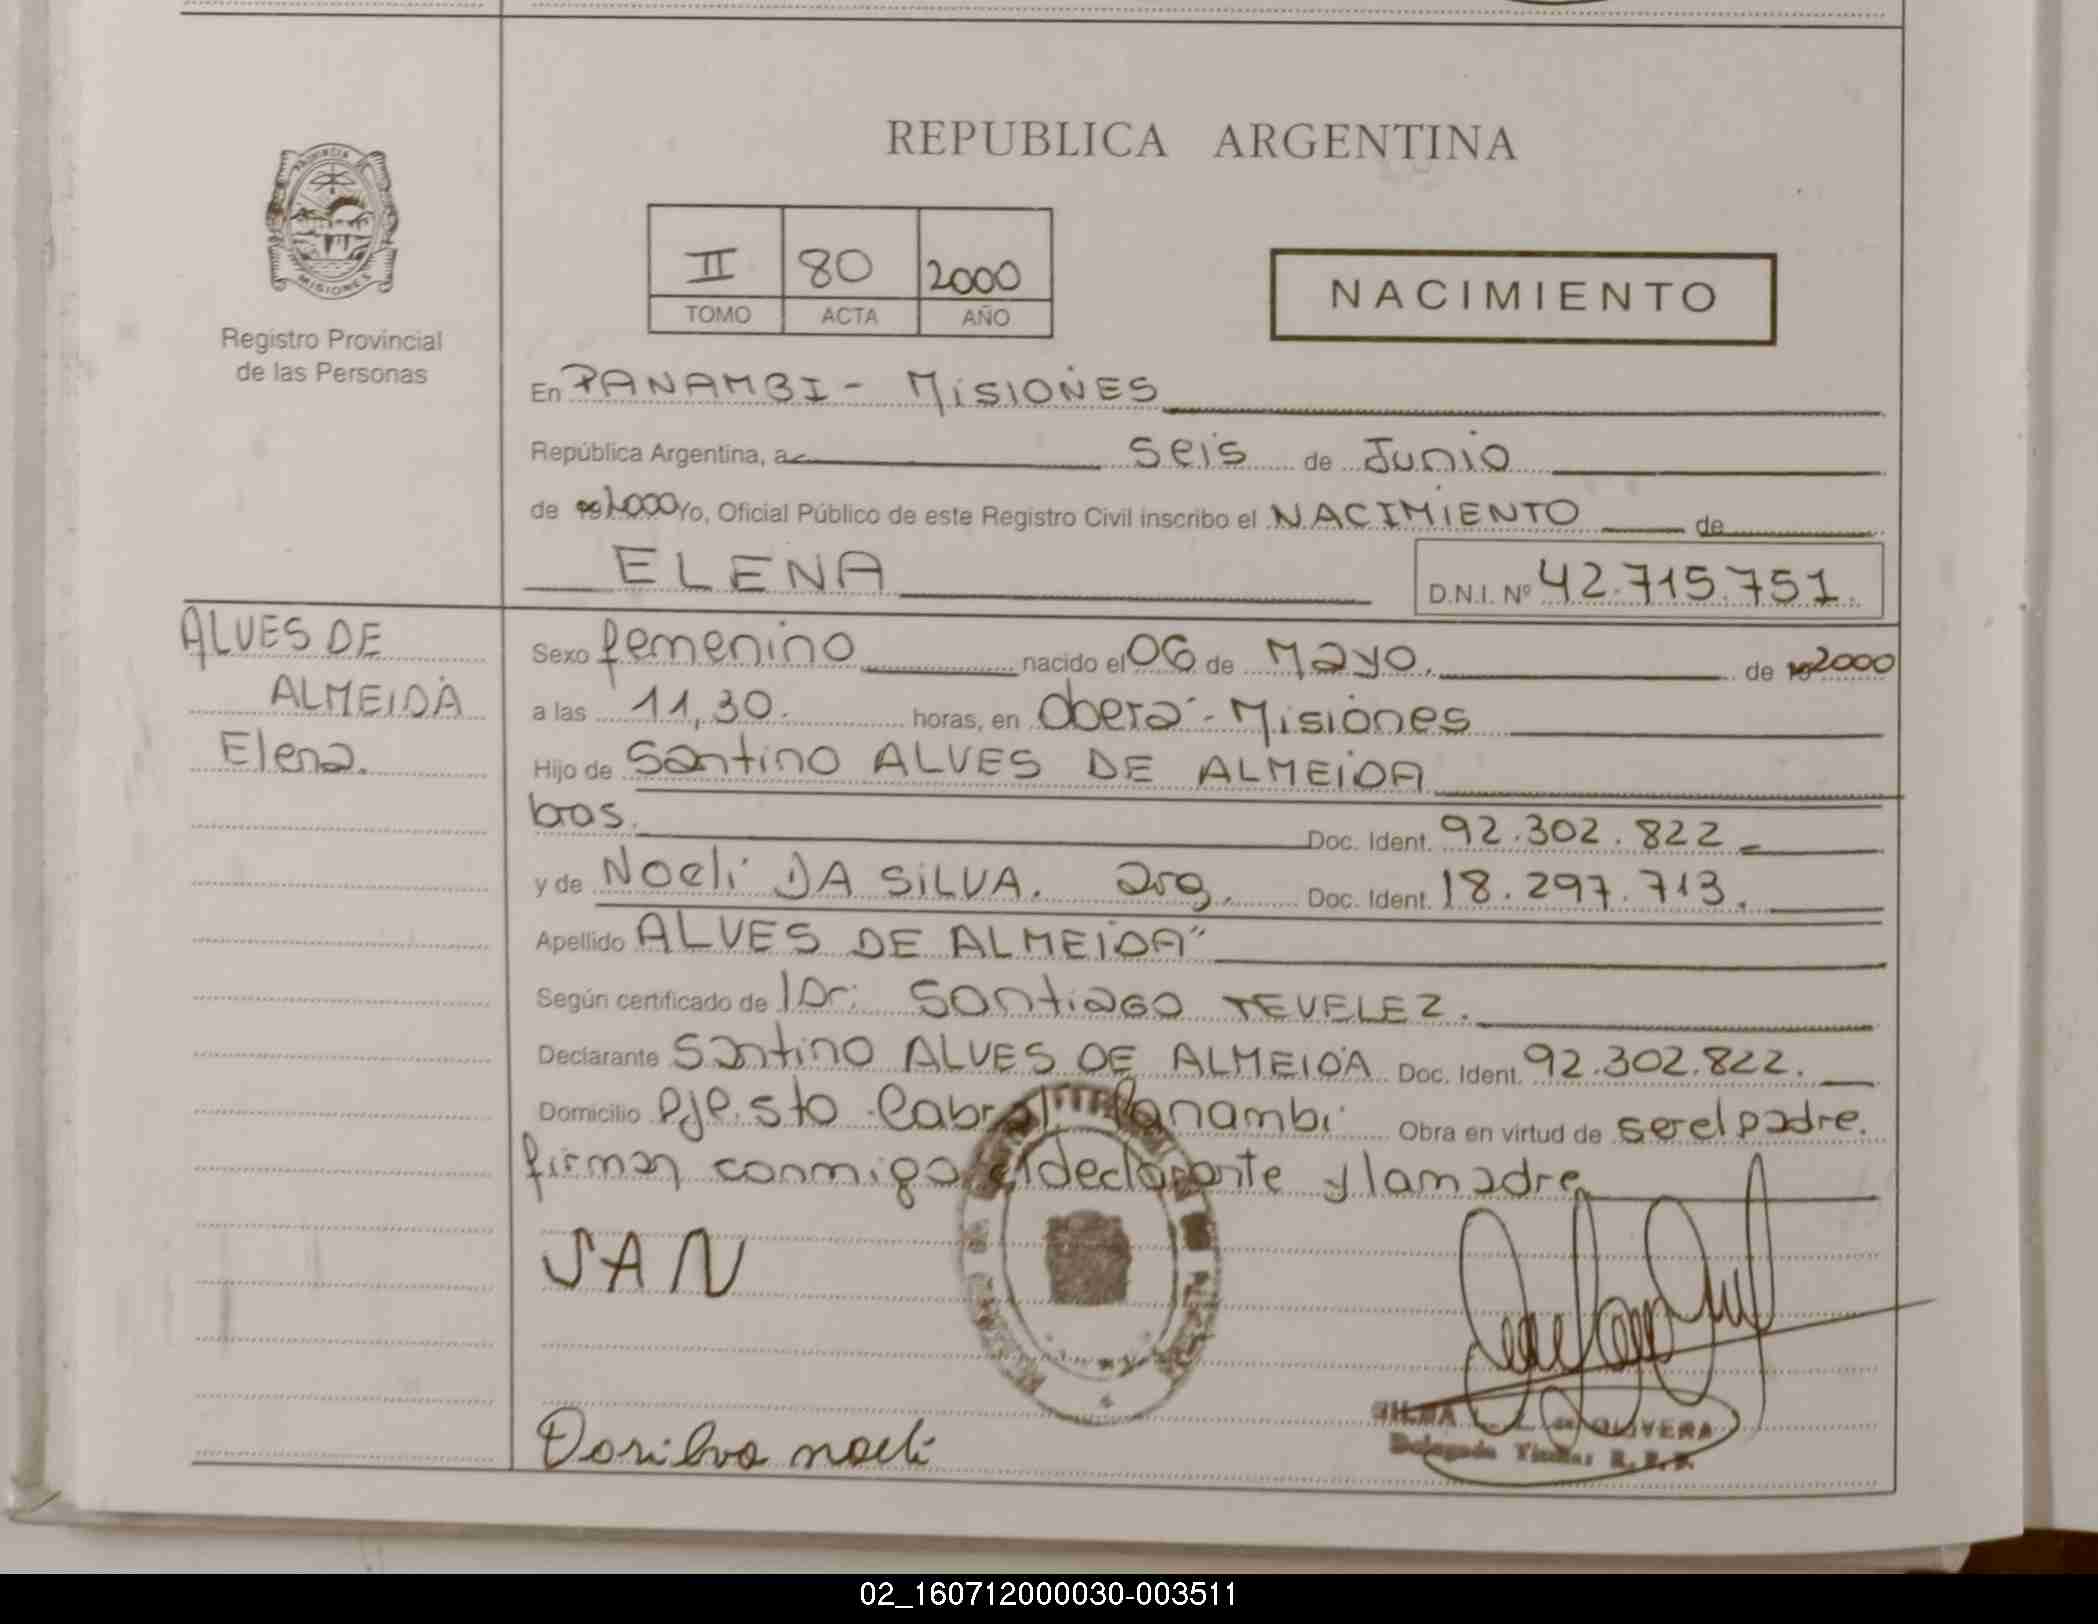 REPUBLICA ARGENTINA
PROVINCIA
MISIONES
Registro Provincial
de las Personas
II 80 2000
TOMO ACTA AÑO
NACIMIENTO
En PANAMBI - MiSIONES
República Argentina, a seis de Junio
de 2000 Yo, Oficial Público de este Registro Civil inscribo el NACIMIENTO de
ELENA D.N.I. Nº 42.715.751.
ALVES DE
ALMEIDA
Elena.
Sexo femenino nacido el 06 de Mayo. de 2000
a las 11,30. horas, en Oberá - Misiones
Hijo de Santino ALVES DE ALMEIDA
bras. Doc. Ident. 92.302.822
y de Noeli DA SILVA. arg. Doc. Ident. 18.297.713.
Apellido ALVES DE ALMEIDA"
Según certificado de Dr: Santiago TEVELEZ.
Declarante Santino ALVES DE ALMEIDA Doc. Ident. 92.302.822.
Domicilio Pje. Sto Cabral Panambi Obra en virtud de ser el padre.
firman conmigo el declarante y la madre
SAN
Dasilva noeli
OLIVERA
Delegada Titular R. P. P.
02_160712000030-003511